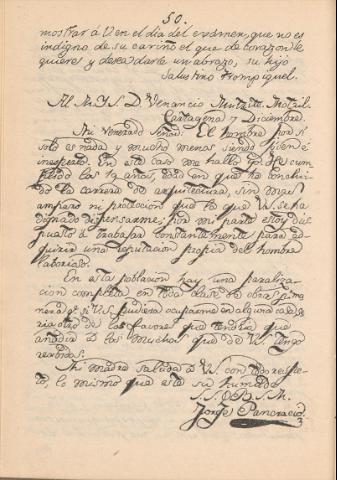 50.
mostrar á V. en el día del exámen, que no es
indigno de su cariño el que de corazon le
quiere y desea darle un abrazo, su hijo
Salustino Trompiquel.
Al M. Y. S. D.n Venancio
Cartagena 7 Diciembre.
Mi Venerado Señor: El hombre por sí
solo es nada y mucho menos siendo jóven é
inesperto. En este caso me hallo yo
plido los 19 años, edad en que he conclui-
do la carrera de arquitectura, sin mas
amparo ni proteccion que la que V.S. se ha
dignado dispensarme; por mi parte estoy dis-
puesto á trabajar constantemente para ad-
quirir una reputacion propia del hombre
laborioso.
En esta poblacion hay una paraliza-
cion completa en toda clase de obras, de ma-
nera qe. si V.S. pudiera ocuparme en alguna
sería otro de los favores que tendría que
añadir á los muchos que de V.S. tengo
recibidos.
Mi madre saluda á V.S. con todo respe-
to, lo mismo que este su humilde
S. S. Q. B. S. M.
Jorge Pancracio.
3